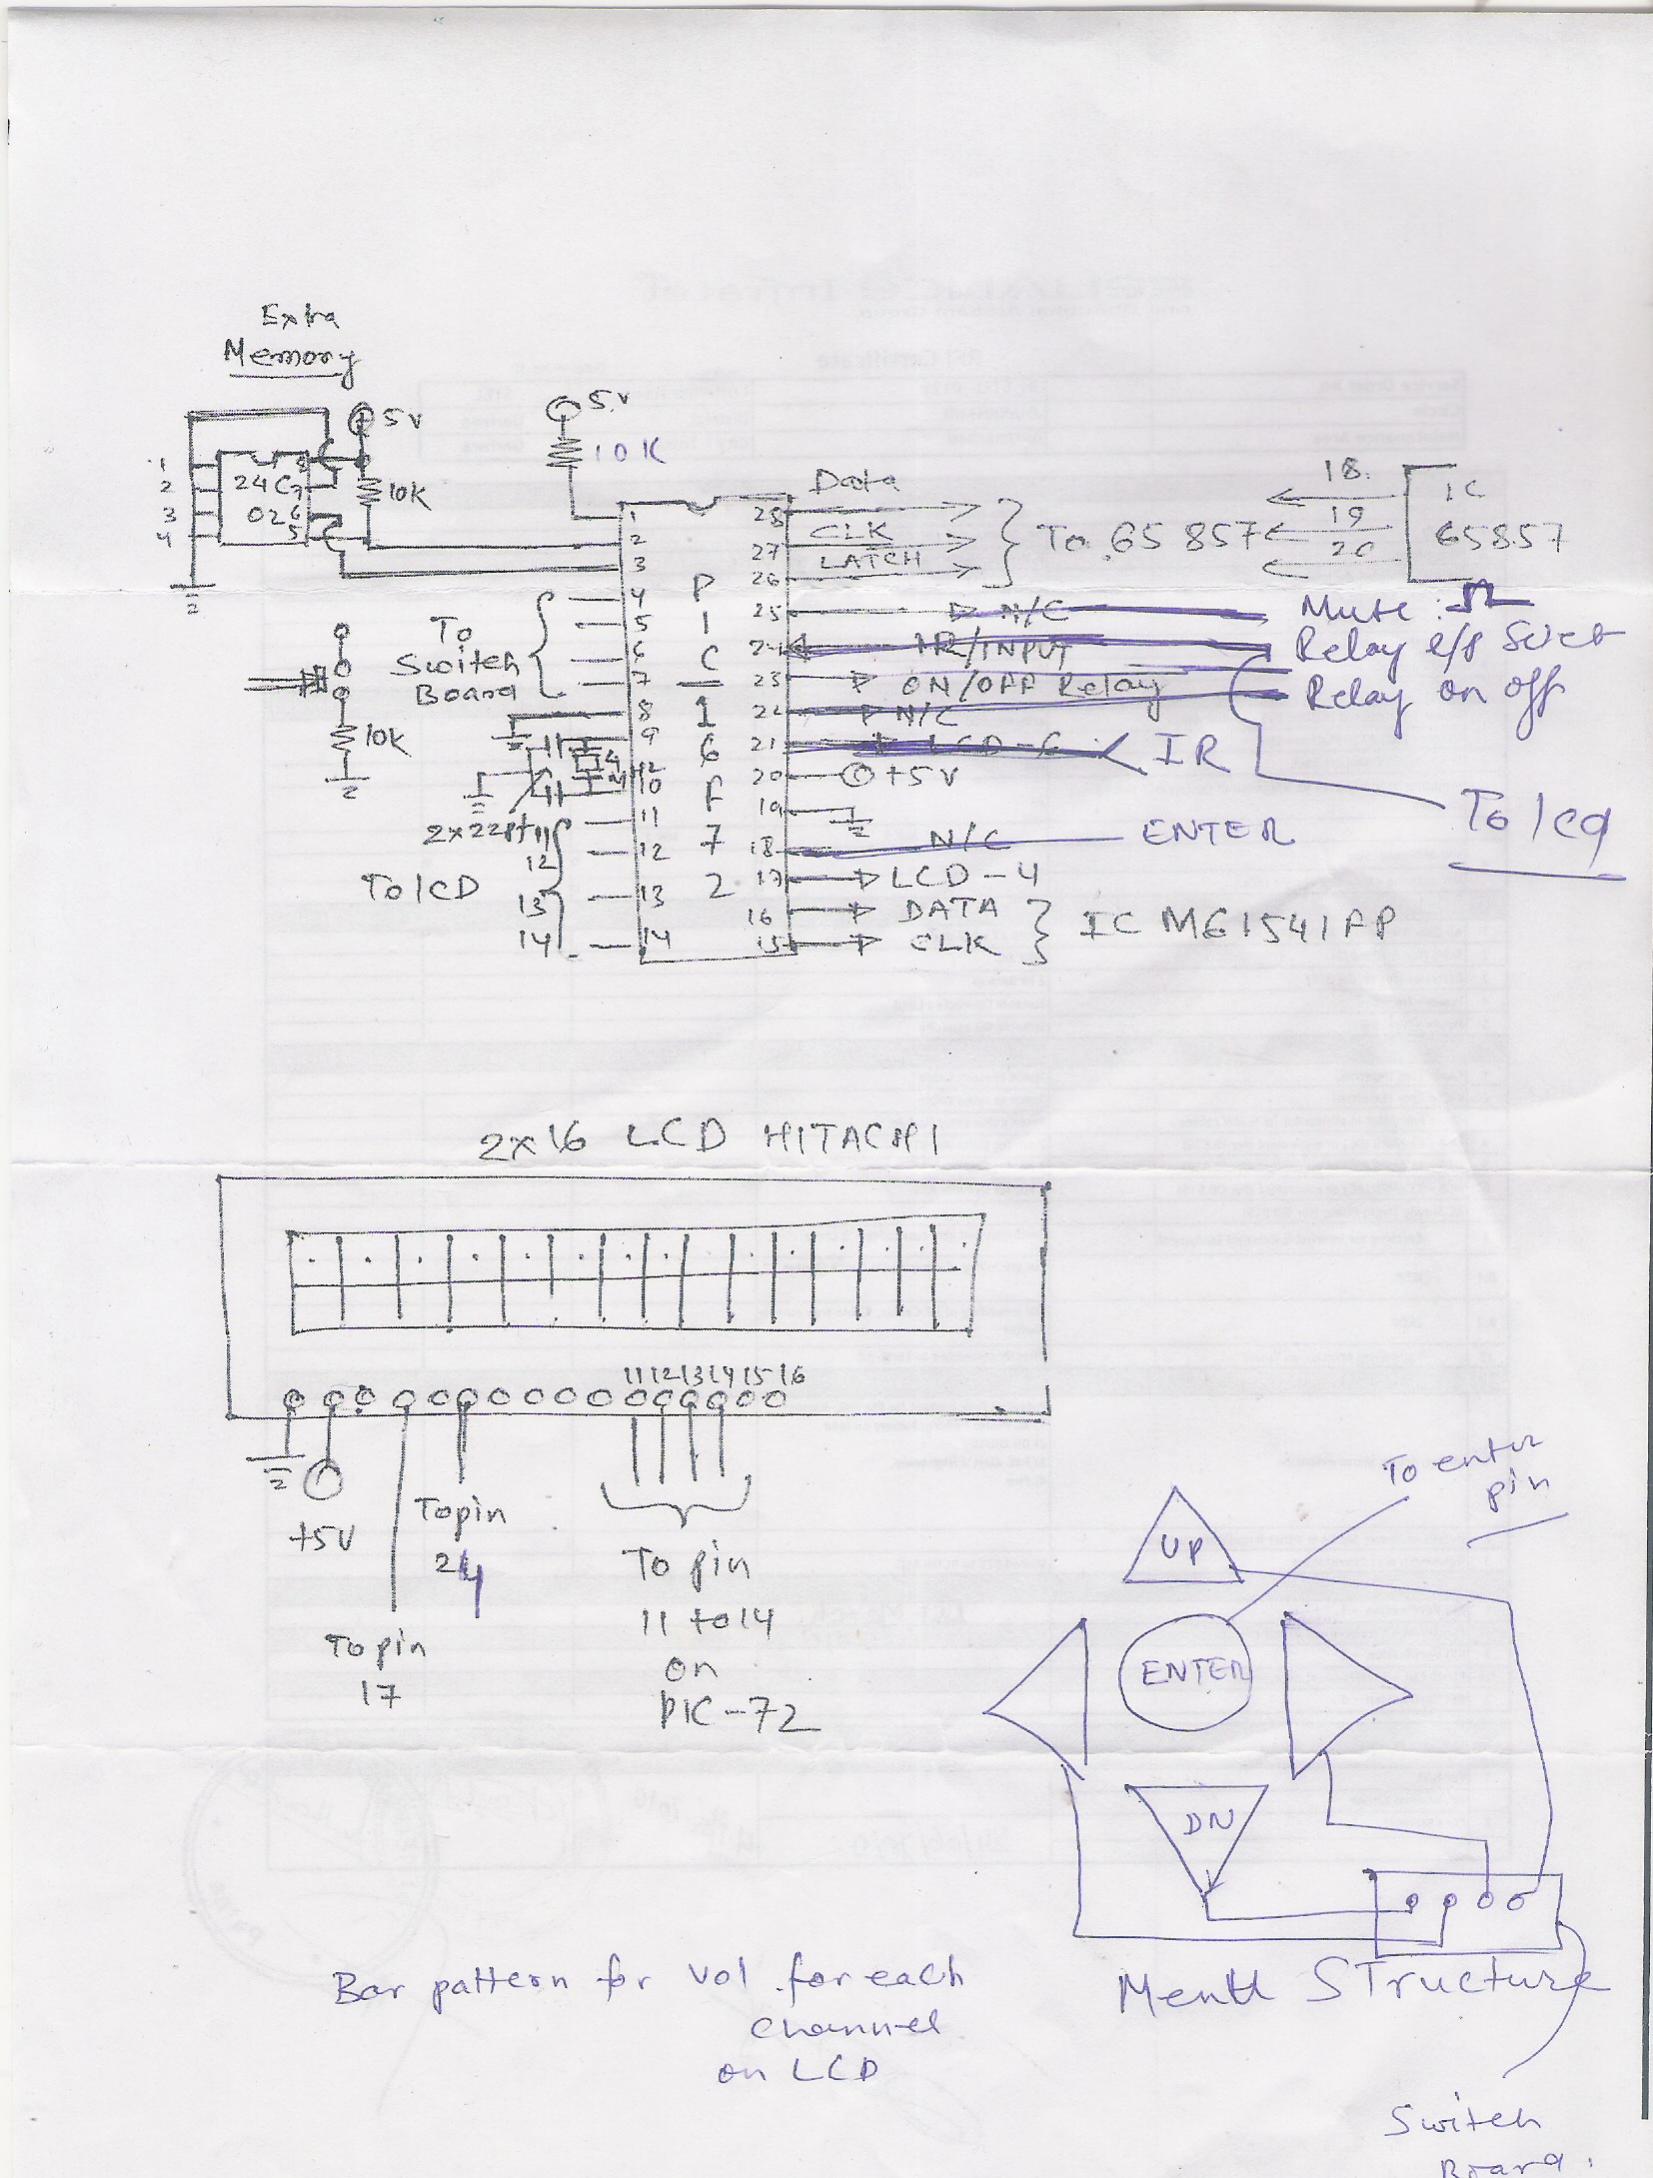 Extra
Memory
5v
5v
10K
10K
1
2
3
4
24C
02
8
7
6
5
Data
CLK
LATCH
To 65857
18.
19
20
IC
65857
1
2
3
4
5
6
7
8
9
10
11
12
13
14
P
I
C
16
F
7
2
28
27
26
25
24
23
22
21
20
19
18
17
16
15
To
Switch
Board
10K
2x22pf
To LCD
11
12
13
14
N/C
IR/INPUT
ON/OFF Relay
N/C
LCD-6
+5v
N/C
LCD-4
DATA
CLK
IC M61541FP
Mute :
Relay on off
IR
ENTER
To lcd
2x16 LCD HITACHI
11 12 13 14 15 16
+5V
To pin
24
To pin
17
To pin
11 to 14
on
PIC-72
To enter
pin
UP
ENTER
DN
Bar pattern for Vol for each
channel
on LCD
Menu Structure
Switch
Board.